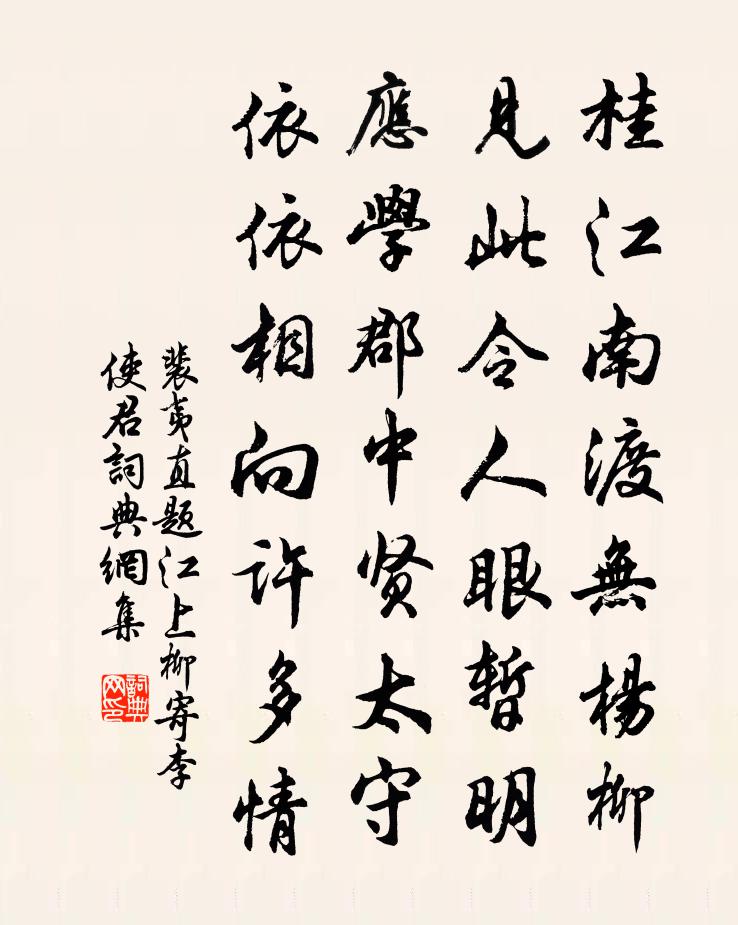 桂江南渡無楊柳
見此令人眼暫明
應學郡中贤太守
依依相向許多情
裴夷直题江上柳寄李
使君詞典網集
詞典网印